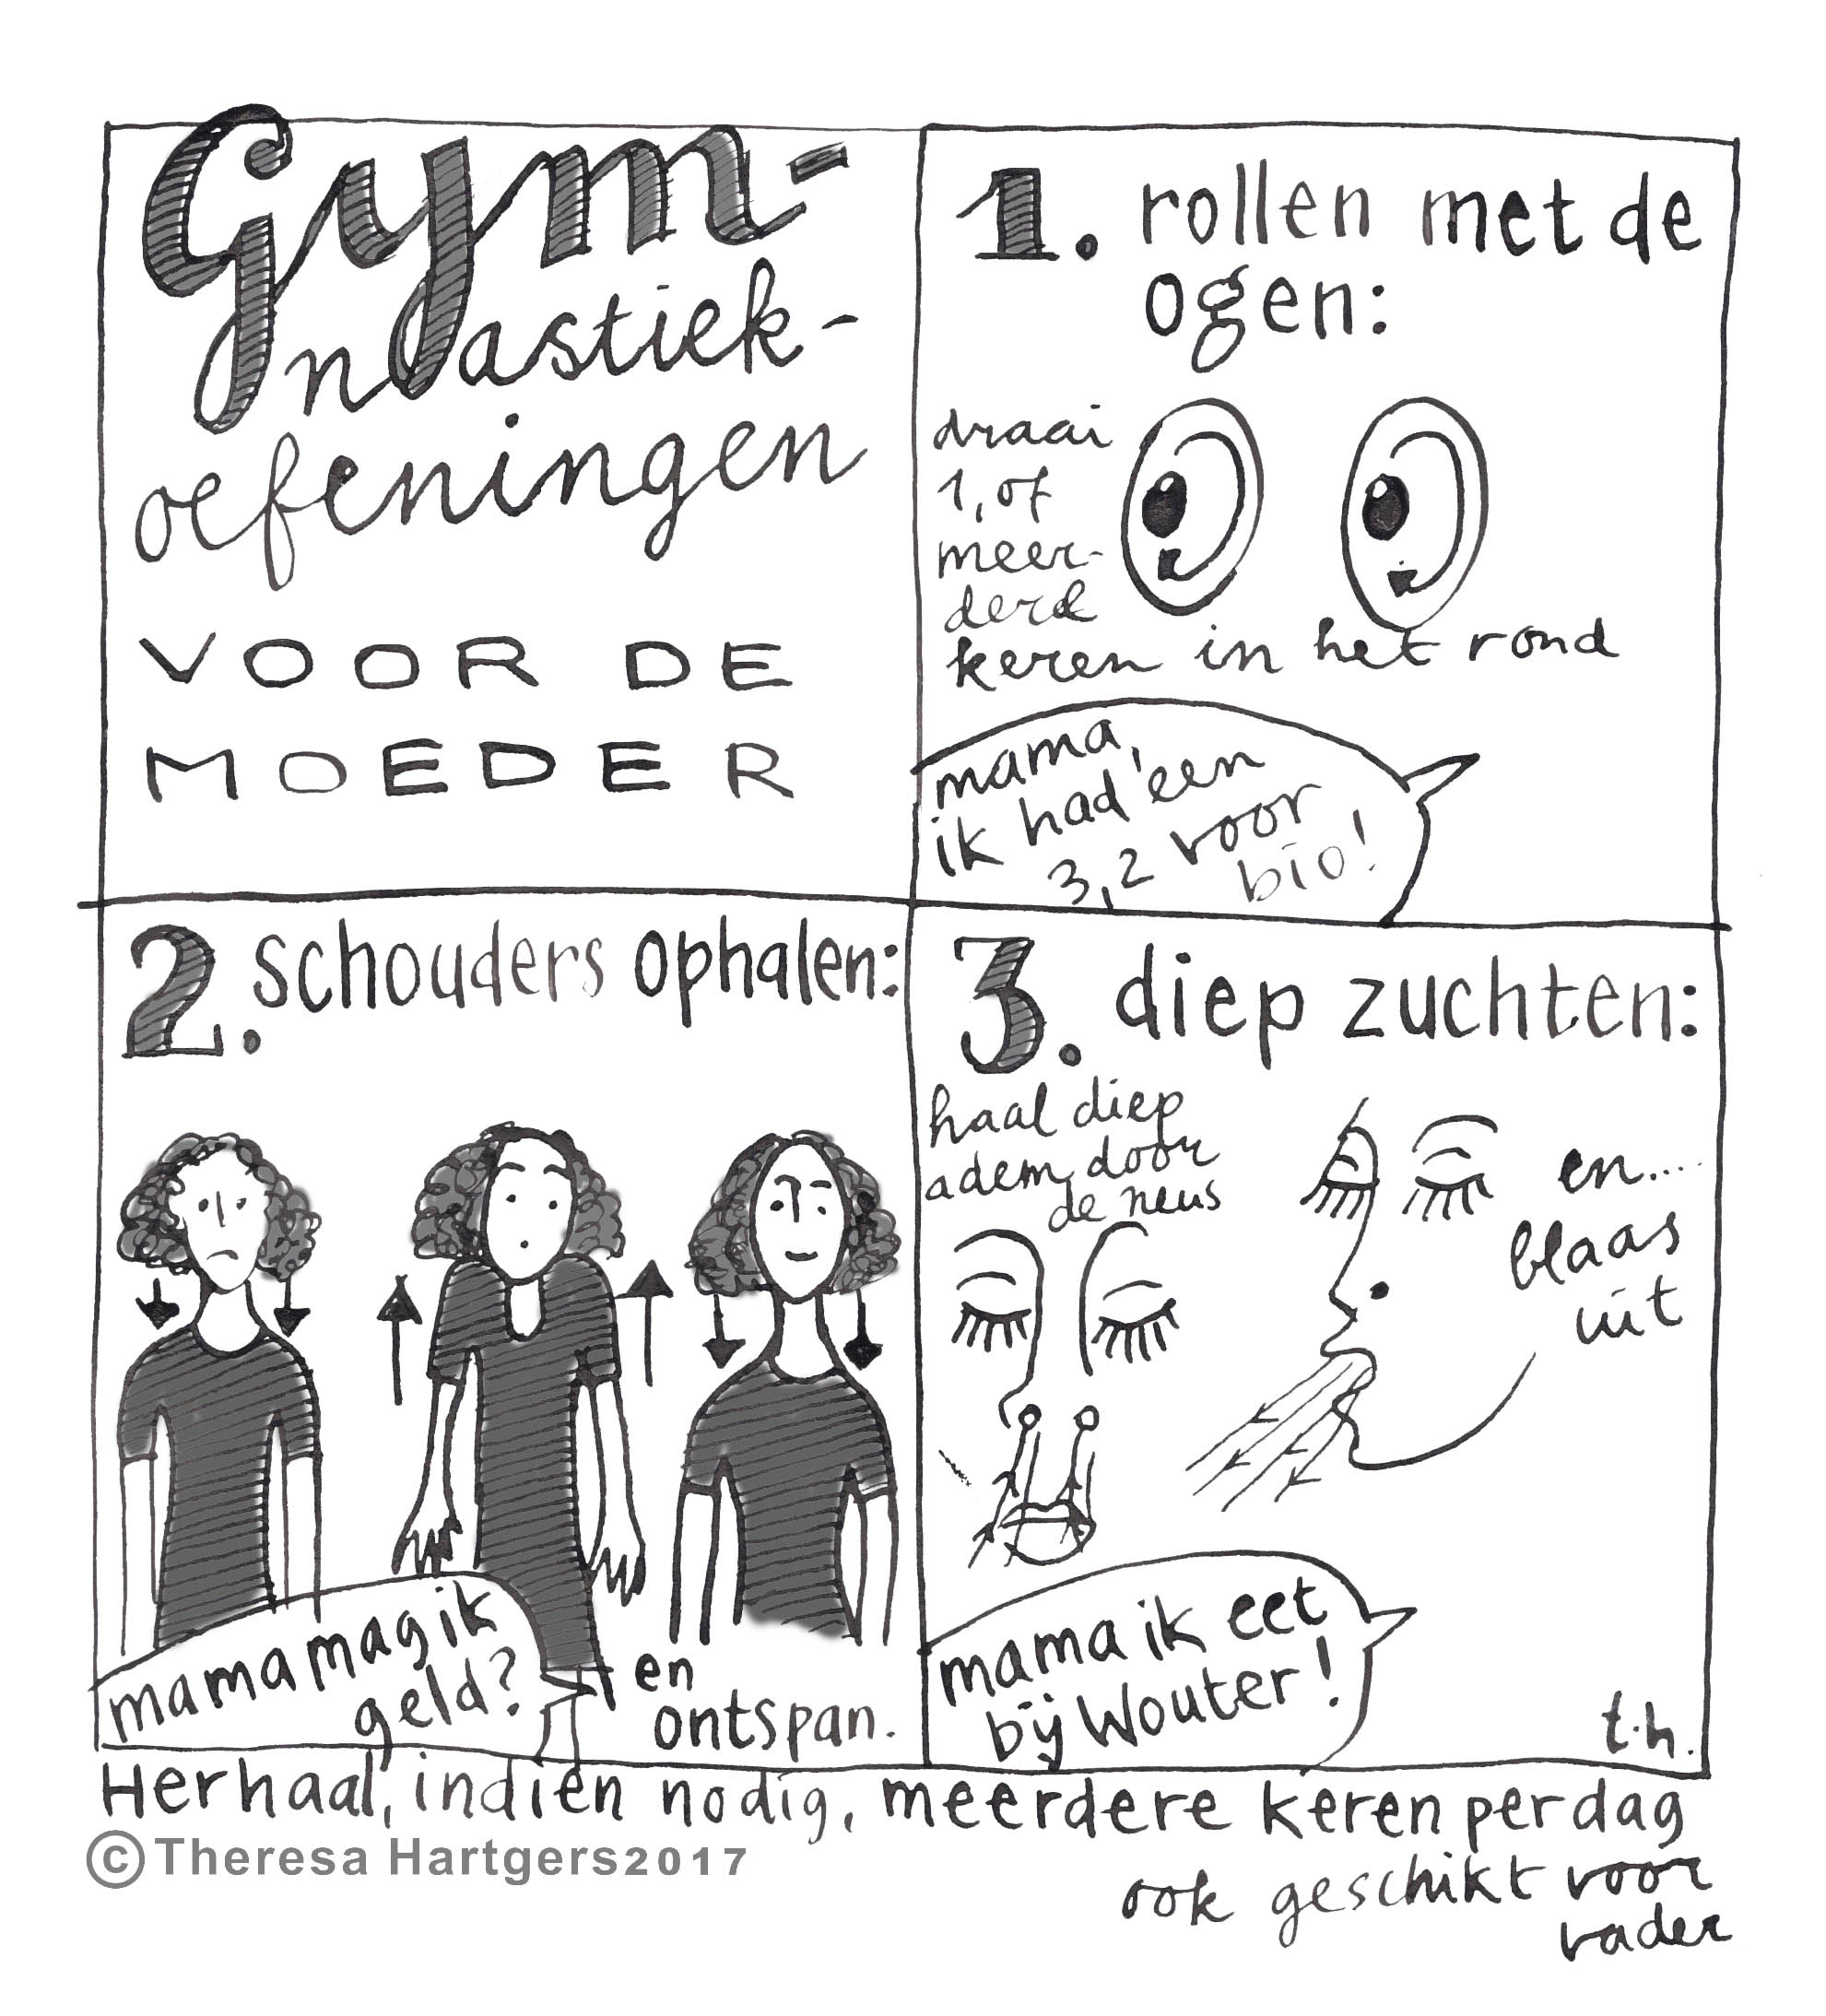 Gym-
nastiek-
oefeningen
VOOR DE
MOEDER
1. rollen met de
ogen:
draai
1, of
meer-
dere
keren in het rond
mama,
ik had 'een
3,2 voor
bio!
2. schouders ophalen:
mama mag ik
geld?
en
ontspan.
3. diep zuchten:
haal diep
adem door
de neus
en....
blaas
uit
mama ik eet
bij Wouter!
t.h.
Herhaal, indien nodig, meerdere keren per dag
© Theresa Hartgers 2017
ook geschikt voor
vader